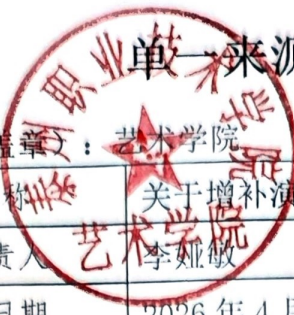 单一来源
盖章）：艺术学院
称 关于增补演
责人 李娅敏
日期 2026年4月
职业技术学院
艺术学院